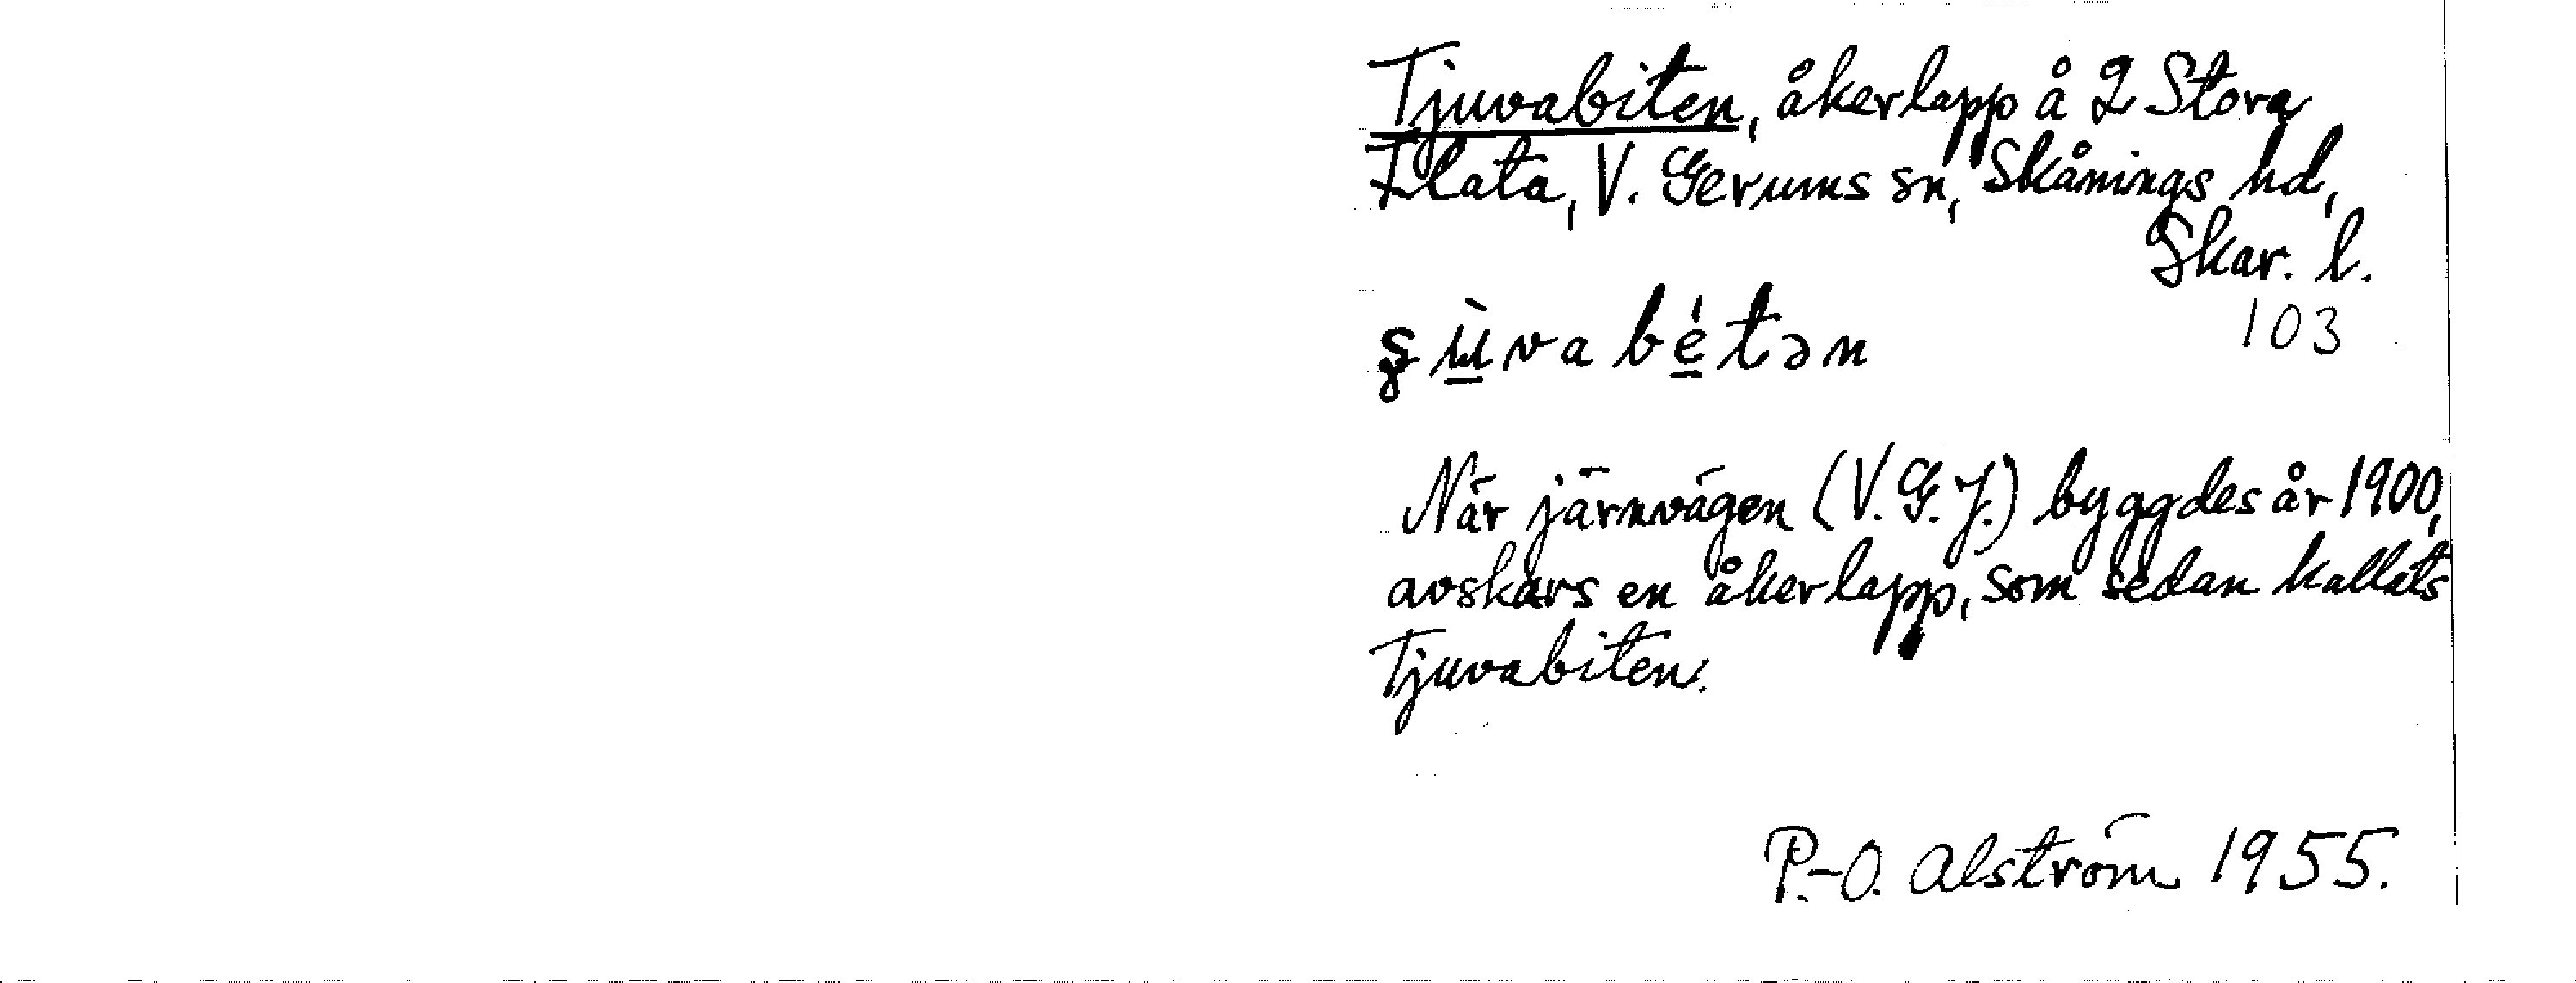 Tjuvabiten, åkerlapp å 2 Stora
Flata, V. Gerums sn, Skånings hd,
Skar. l.
103
När järnvägen (V.G.J.) byggdes år 1900,
avskars en åkerlapp, som sedan kallats
Tjuvabiten.
P.-O. Alström 1955.